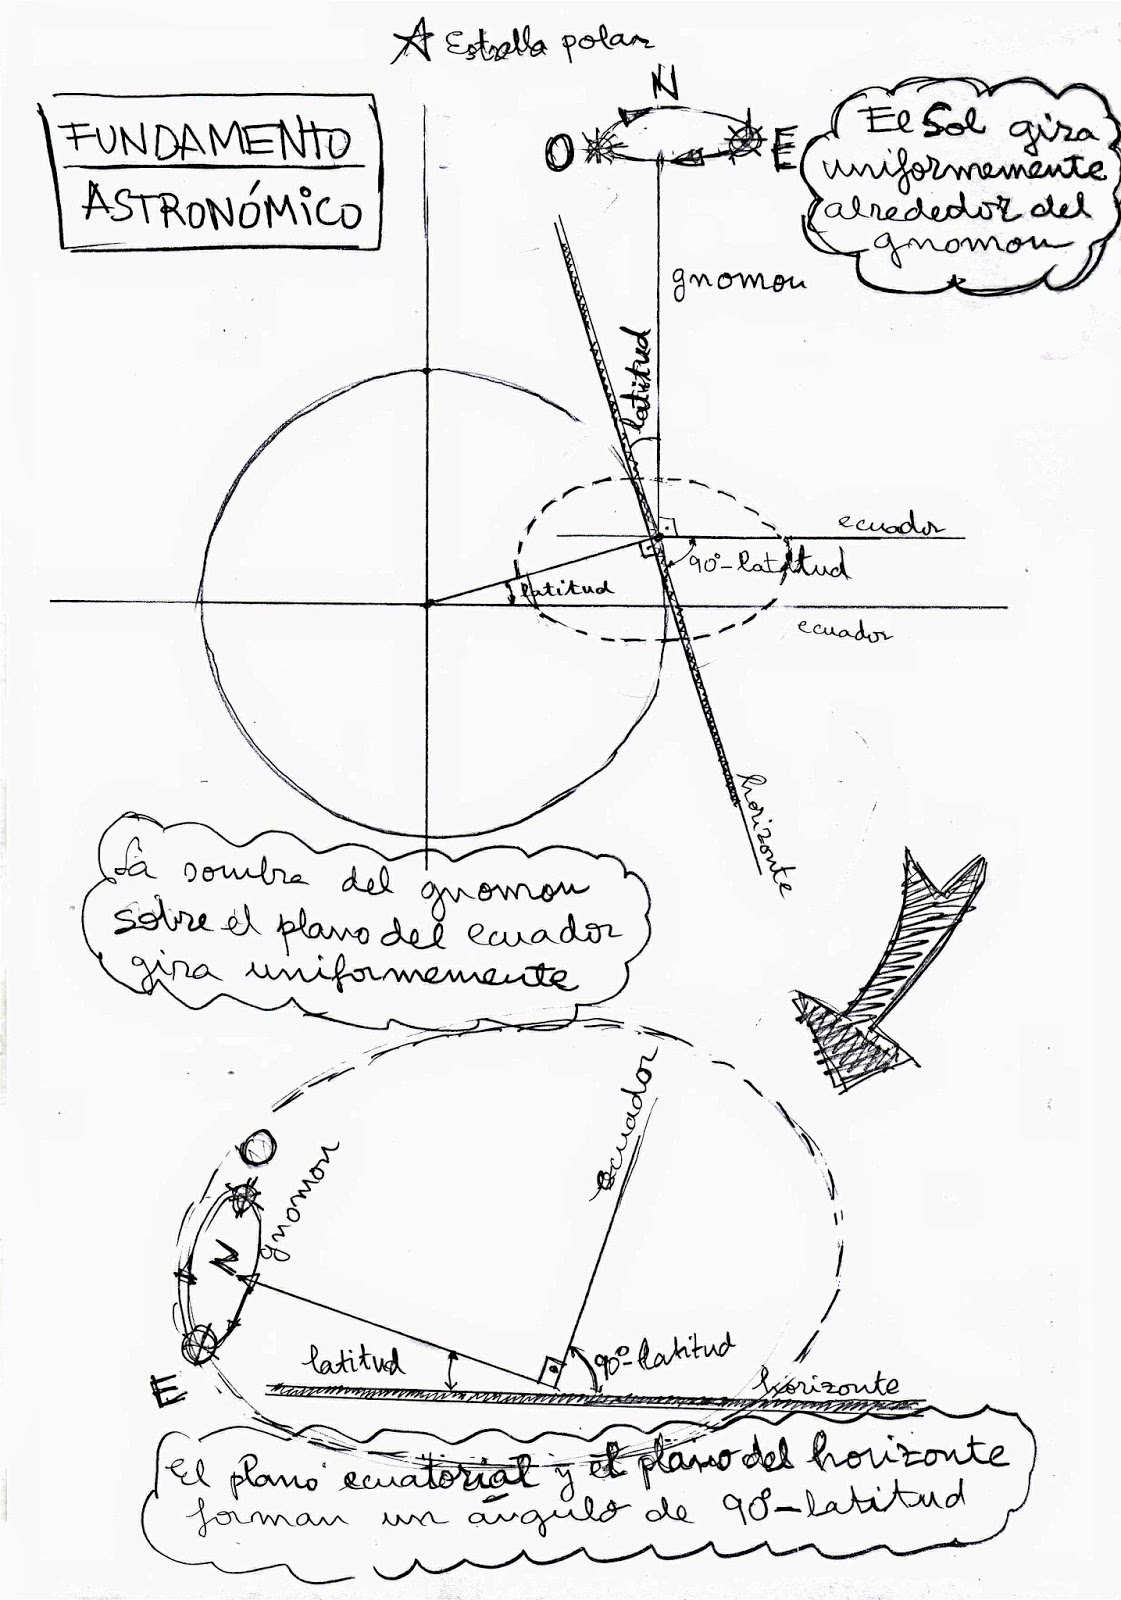 Estrella polar
FUNDAMENTO
ASTRONÓMICO
N
O
E
El Sol gira
uniformemente
alrededor del
gnomon
gnomon
latitud
ecuador
90°-latitud
latitud
ecuador
horizonte
La sombra del gnomon
sobre el plano del ecuador
gira uniformemente
ecuador
O
gnomon
N
E
latitud
90°-latitud
horizonte
El plano ecuatorial y el plano del horizonte
forman un ángulo de 90°-latitud